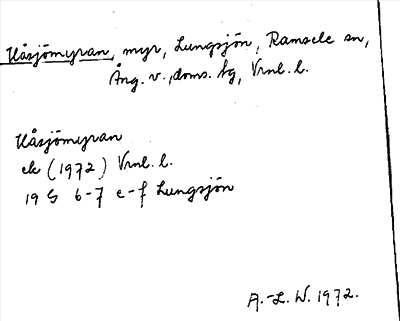 Håsjömyran, myr, Lungsjön, Ramsele sn,
Ång. v., doms. tg, Vrnl. l.
Håsjömyran
ek (1972) Vrnl. l.
19 G 6-7 e-f Lungsjön
A.-L. W. 1972.